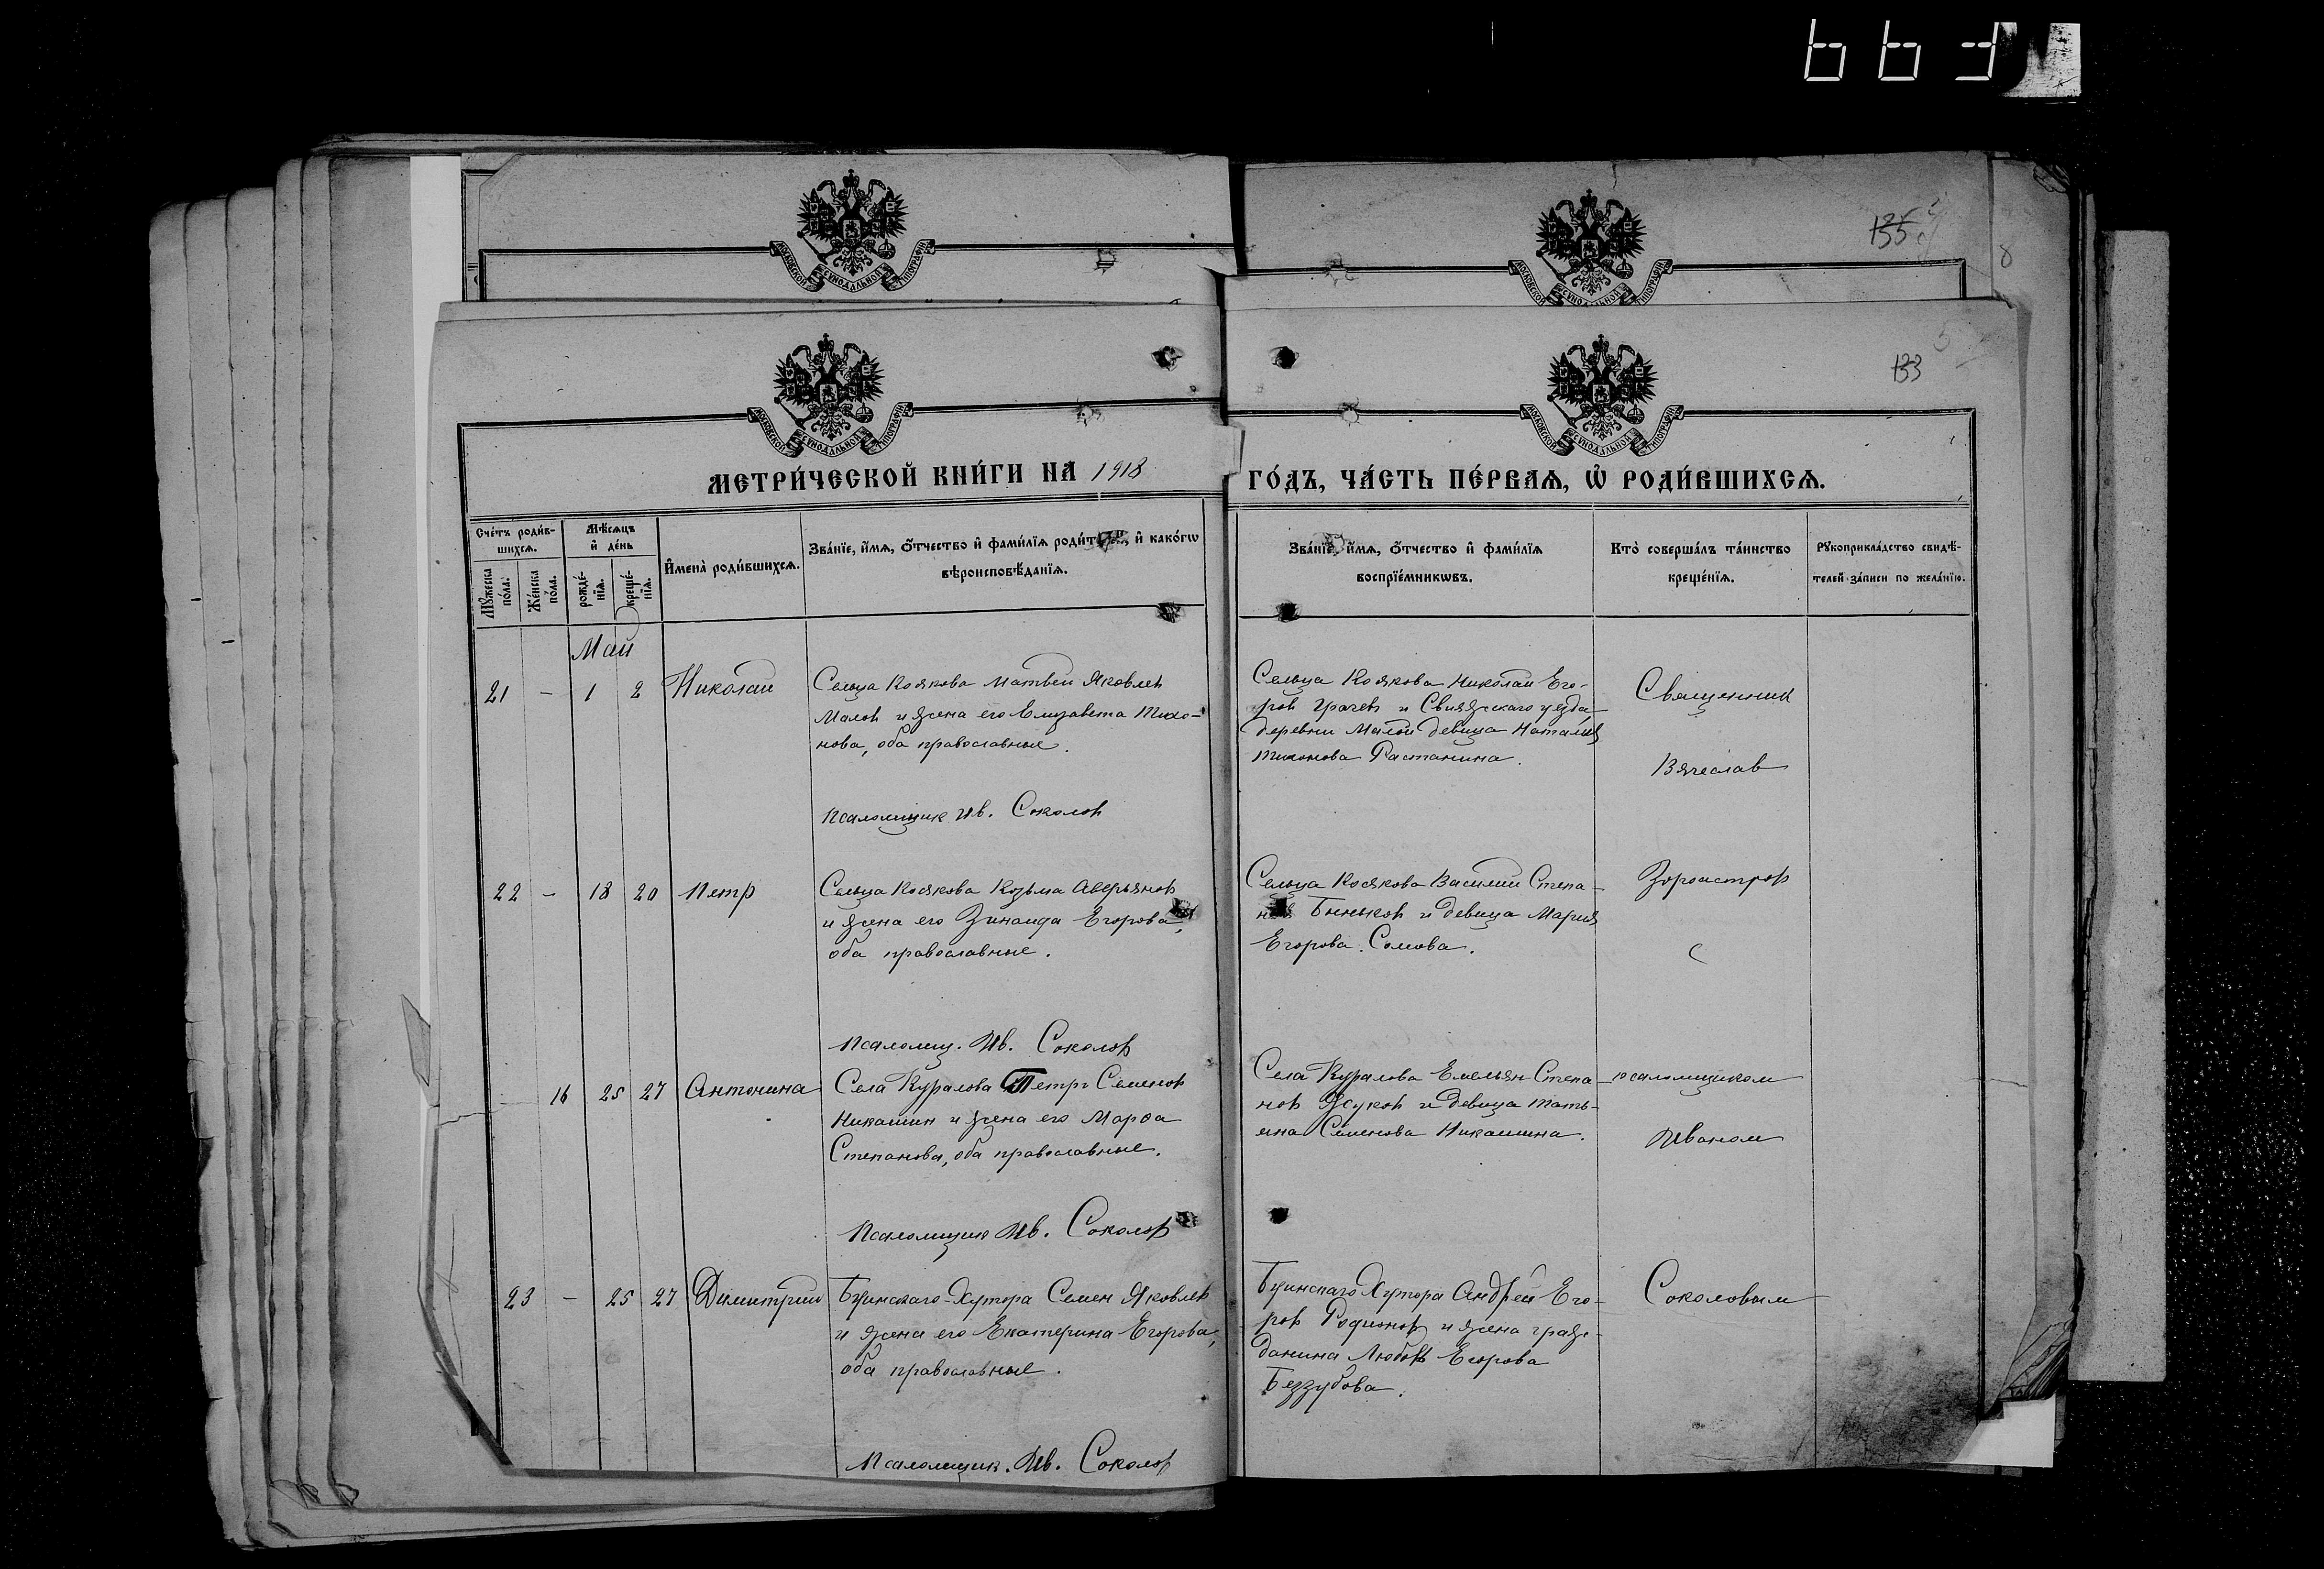 667
МОСКОВСКОЙ СѴНОДАЛЬНОЙ ТИПОГРАФІИ
МОСКОВСКОЙ СѴНОДАЛЬНОЙ ТИПОГРАФІИ
135
8
133
МОСКОВСКОЙ СѴНОДАЛЬНОЙ ТИПОГРАФІИ
МОСКОВСКОЙ СѴНОДАЛЬНОЙ ТИПОГРАФІИ
МЕТРИ́ЧЕСКОЙ КНИ́ГИ НА 1918
ГО́ДЪ, ЧА́СТЬ ПЕ́РВАѦ, Ѡ҆ РОДИ́ВШИХСѦ.
Сче́тъ роди́в-
шихсѧ.
Мꙋ́жеска по́ла.
Же́нска по́ла.
Мѣ́сѧцъ
и҆ де́нь
рожде́-
нїѧ.
креще́-
нїѧ.
И҆мена̀ роди́вшихсѧ.
Зва́нїе, и҆́мѧ, ѻ҆́тчество и҆ фами́лїѧ роди́телей, и҆ како́гѡ
вѣроисповѣ́данїѧ.
Зва́нїе, и҆́мѧ, ѻ҆́тчество и҆ фами́лїѧ
воспрїе́мникѡвъ.
Кто̀ соверша́лъ та́инство
креще́нїѧ.
Рꙋкоприкла́дство свидѣ́-
телей за́писи по жела́нїю.
Май
21 – 1 2 Николай
Сельца Коякова Матвей Яковлев
Малов и жена его Елизавета Тихо-
нова, оба православные.
Псаломщик Ив. Соколов
Сельца Коякова Николай Его-
ров Грачев и Свияжскаго уезда
деревни Малой девица Наталия
Тихонова Растанина.
Священник
Вячеслав
22 – 18 20 Петр
Сельца Коякова Козьма Аверьянов
и жена его Зинаида Егорова,
оба православные.
Псаломщ. Ив. Соколов
Сельца Коякова Василий Степа-
нов Быньков и девица Мария
Егорова Сомова.
Зороастров
с
16 25 27 Антонина
Села Куралова Петр Семенов
Никашин и жена его Марфа
Степанова, оба православные.
Псаломщик Ив. Соколов
Села Куралова Емельян Степа-
нов Жуков и девица Тать-
яна Семенова Никашина.
псаломщиком
Иваном
23 – 25 27 Димитрий
Буинскаго Хутора Семен Яковлев
и жена его Екатерина Егорова,
оба православные.
Псаломщик. Ив. Соколов
Буинскаго Хутора Андрей Его-
ров Родионов и жена граж-
данина Любовь Егорова
Беззубова.
Соколовым